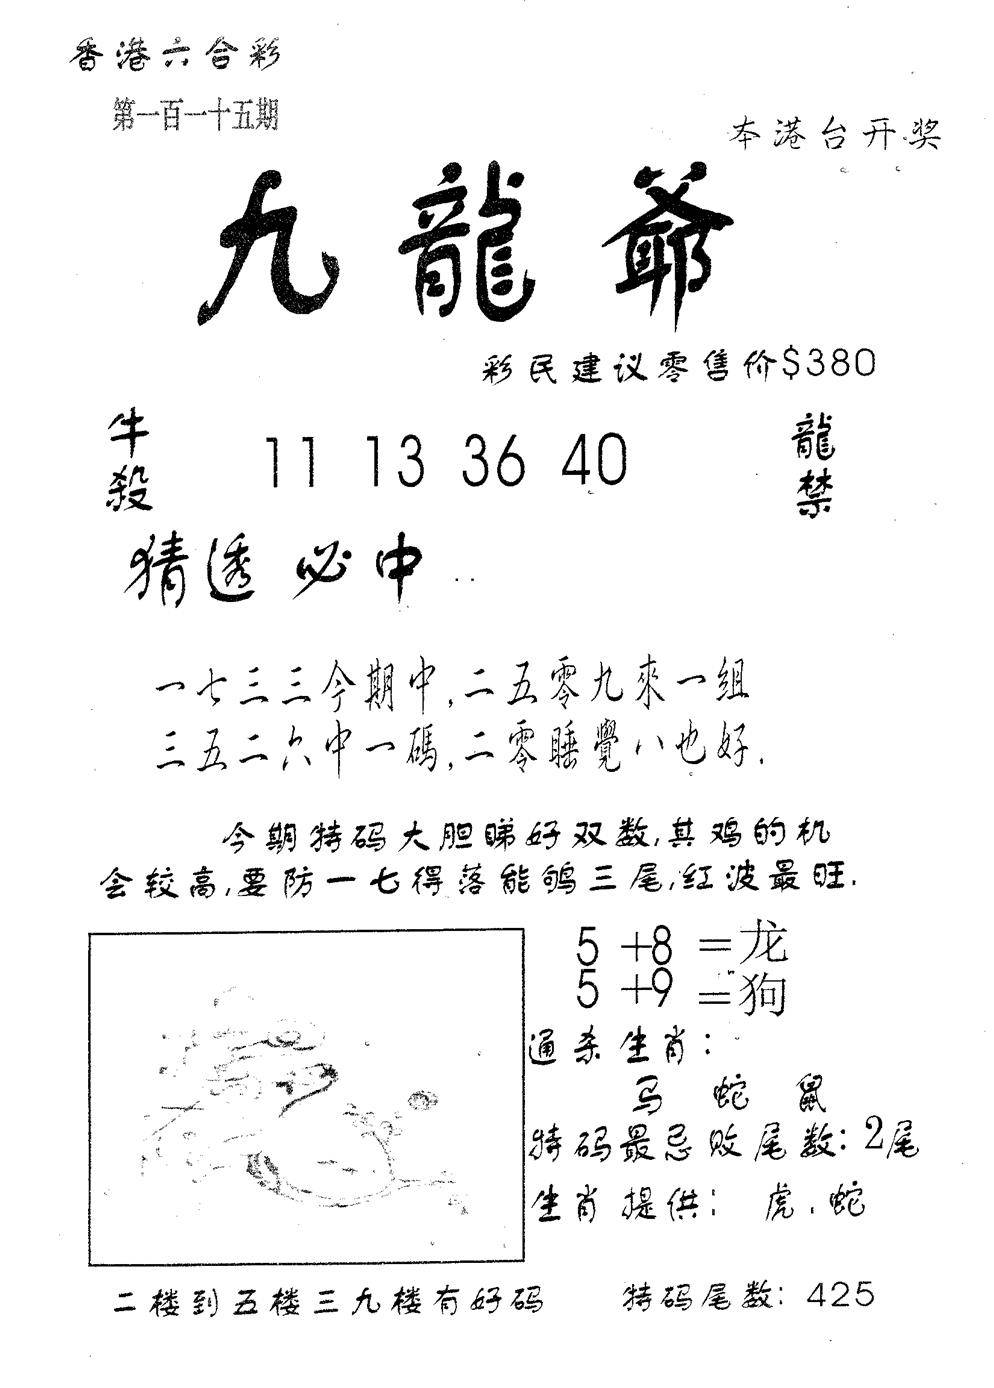 香港六合彩
第一百一十五期
本港台开奖
九龍爺
彩民建议零售价$380
牛殺
11 13 36 40
龍禁
猜透必中
一七三三今期中,二五零九來一組
三五二六中一碼,二零睡覺八也好.
今期特码大胆睇好双数,其鸡的机
会较高,要防一七得落能鸲三尾,红波最旺.
5+8=龙
5+9=狗
通杀生肖:
马 蛇 鼠
特码最忌败尾数:2尾
生肖提供: 虎.蛇
二楼到五楼三九楼有好码
特码尾数: 425